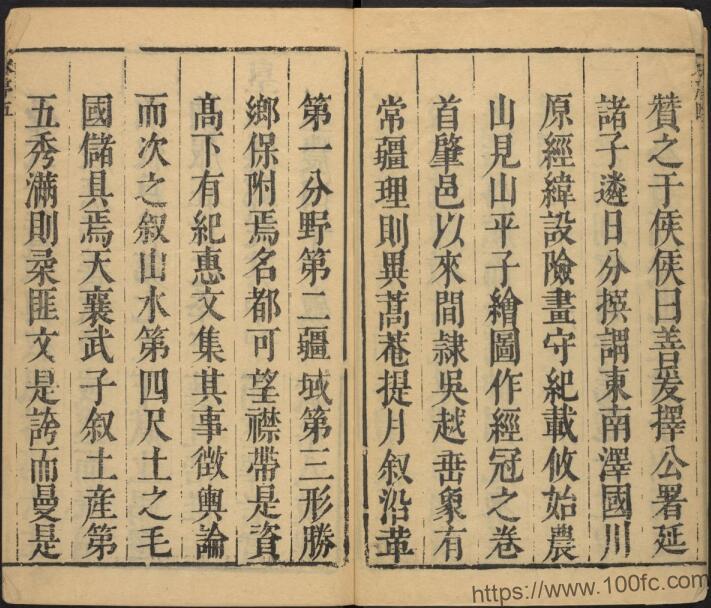 贊之于矦矦曰善爰擇公署延
諸子遴日分撰謂東南澤國川
原經緯設險畫守紀載攸始農
山見山平子繪圖作經冠之卷
首肇邑以來間隷吳越埀象有
常疆理則異蒿菴提月叙沿革
第一分野第二疆域第三形勝
鄉保附焉名都可望襟帶是資
髙下有紀惠文集其事徴輿論
而次之叙山水第四尺土之毛
國儲具焉天襄武子叙土産第
五秀滿則彔匪文是誇而曼是
https://www.100fc.com